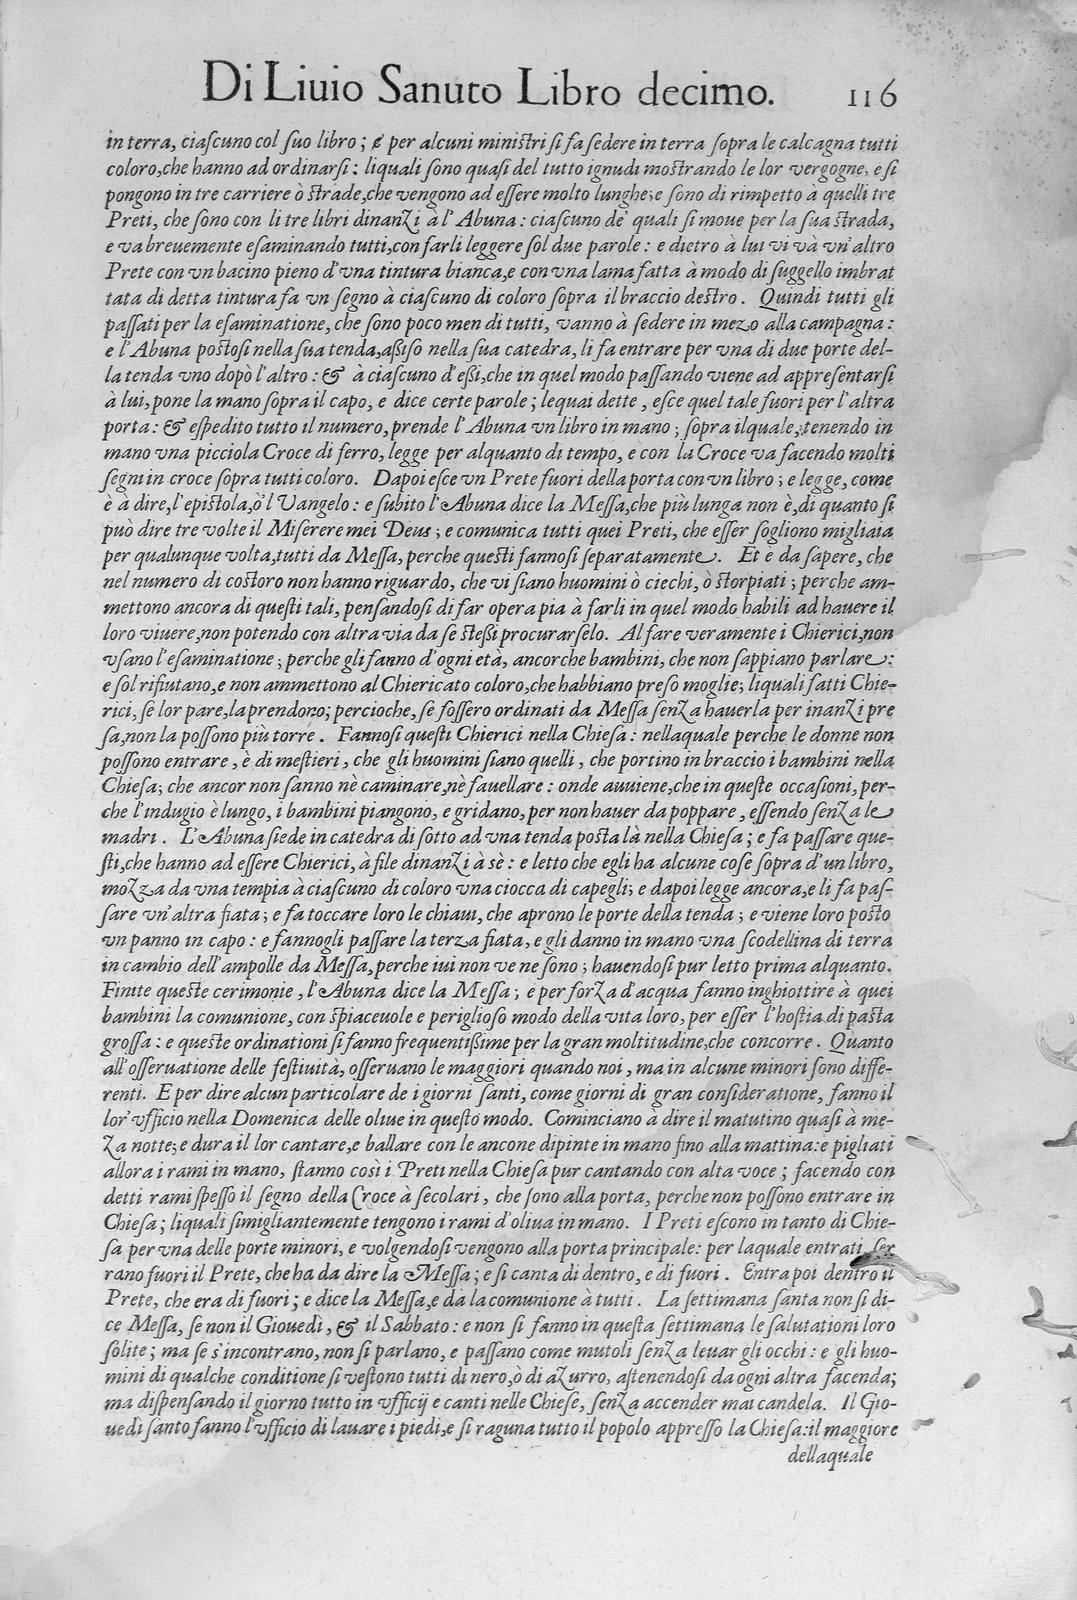 Di Liuio Sanuto Libro decimo. 116
in terra, ciaſcuno col ſuo libro; e per alcuni miniſtri ſi fa ſedere in terra ſopra le calcagna tutti
coloro, che hanno ad ordinarſi: liquali ſono quaſi del tutto ignudi moſtrando le lor vergogne, e ſi
pongono in tre carriere ò ſtrade, che vengono ad eſſere molto lunghe; e ſono di rimpetto à quelli tre
Preti, che ſono con li tre libri dinanzi à l'Abuna: ciaſcuno de' quali ſi moue per la ſua ſtrada,
e va breuemente eſaminando tutti, con farli leggere ſol due parole: e dietro à lui vi và vn' altro
Prete con vn bacino pieno d'vna tintura bianca, e con vna lama fatta à modo di ſuggello imbrat
tata di detta tintura fa vn ſegno à ciaſcuno di coloro ſopra il braccio deſtro. Quindi tutti gli
paſſati per la eſaminatione, che ſono poco men di tutti, vanno à ſedere in mezo alla campagna:
e l'Abuna poſtoſi nella ſua tenda, aſſiſo nella ſua catedra, li fa entrare per vna di due porte del-
la tenda vno dopò l'altro: & à ciaſcuno d'eſſi, che in quel modo paſſando viene ad appreſentarſi
à lui, pone la mano ſopra il capo, e dice certe parole; lequai dette, eſce quel tale fuori per l'altra
porta: & eſpedito tutto il numero, prende l'Abuna vn libro in mano; ſopra ilquale, tenendo in
mano vna picciola Croce di ferro, legge per alquanto di tempo, e con la Croce va facendo molti
ſegni in croce ſopra tutti coloro. Dapoi eſce vn Prete fuori della porta con vn libro; e legge, come
è à dire, l'epiſtola, ò l'Vangelo: e ſubito l'Abuna dice la Meſſa, che più lunga non è, di quanto ſi
può dire tre volte il Miſerere mei Deus; e comunica tutti quei Preti, che eſſer ſogliono migliaia
per qualunque volta, tutti da Meſſa, perche queſti fannoſi ſeparatamente. Et è da ſapere, che
nel numero di coſtoro non hanno riguardo, che vi ſiano huomini ò ciechi, ò ſtorpiati; perche am-
mettono ancora di queſti tali, penſandoſi di far opera pia à farli in quel modo habili ad hauere il
loro viuere, non potendo con altra via da ſe ſteſſi procurarſelo. Al fare veramente i Chierici, non
vſano l'eſaminatione; perche gli fanno d'ogni età, ancorche bambini, che non ſappiano parlare:
e ſol rifiutano, e non ammettono al Chiericato coloro, che habbiano preſo moglie; liquali fatti Chie-
rici, ſe lor pare, la prendono; percioche, ſe foſſero ordinati da Meſſa ſenza hauerla per inanzi pre
ſa, non la poſſono più torre. Fannoſi queſti Chierici nella Chieſa: nellaquale perche le donne non
poſſono entrare, è di meſtieri, che gli huomini ſiano quelli, che portino in braccio i bambini nella
Chieſa; che ancor non ſanno nè caminare, nè fauellare: onde auuiene, che in queſte occaſioni, per-
che l'indugio è lungo, i bambini piangono, e gridano, per non hauer da poppare, eſſendo ſenza le
madri. L'Abuna ſiede in catedra di ſotto ad vna tenda poſta là nella Chieſa; e fa paſſare que-
ſti, che hanno ad eſſere Chierici, à file dinanzi à sè: e letto che egli ha alcune coſe ſopra d'un libro,
mozza da vna tempia à ciaſcuno di coloro vna ciocca di capegli; e dapoi legge ancora, e li fa paſ-
ſare vn' altra fiata; e fa toccare loro le chiaui, che aprono le porte della tenda; e viene loro poſto
vn panno in capo: e fannogli paſſare la terza fiata, e gli danno in mano vna ſcodellina di terra
in cambio dell'ampolle da Meſſa, perche iui non ve ne ſono; hauendoſi pur letto prima alquanto.
Finite queſte cerimonie, l'Abuna dice la Meſſa; e per forza d'acqua fanno inghiottire à quei
bambini la comunione, con ſpiaceuole e periglioſo modo della vita loro, per eſſer l'hoſtia di paſta
groſſa: e queſte ordinationi ſi fanno frequentiſſime per la gran moltitudine, che concorre. Quanto
all'oſſeruatione delle feſtiuità, oſſeruano le maggiori quando noi, ma in alcune minori ſono diffe-
renti. E per dire alcun particolare de i giorni ſanti, come giorni di gran conſideratione, fanno il
lor' vfficio nella Domenica delle oliue in queſto modo. Cominciano à dire il matutino quaſi à me-
za notte; e dura il lor cantare, e ballare con le ancone dipinte in mano fino alla mattina: e pigliati
allora i rami in mano, ſtanno così i Preti nella Chieſa pur cantando con alta voce; facendo con
detti rami ſpeſſo il ſegno della Croce à ſecolari, che ſono alla porta, perche non poſſono entrare in
Chieſa; liquali ſimigliantemente tengono i rami d'oliua in mano. I Preti eſcono in tanto di Chie-
ſa per vna delle porte minori, e volgendoſi vengono alla porta principale: per laquale entrati, ſer
rano fuori il Prete, che ha da dire la Meſſa; e ſi canta di dentro, e di fuori. Entra poi dentro il
Prete, che era di fuori; e dice la Meſſa, e dà la comunione à tutti. La ſettimana ſanta non ſi di-
ce Meſſa, ſe non il Giouedì, & il Sabbato: e non ſi fanno in queſta ſettimana le ſalutationi loro
ſolite; ma ſe s'incontrano, non ſi parlano, e paſſano come mutoli ſenza leuar gli occhi: e gli huo-
mini di qualche conditione ſi veſtono tutti di nero, ò di azurro, aſtenendoſi da ogni altra facenda;
ma diſpenſando il giorno tutto in vfficij e canti nelle Chieſe, ſenza accender mai candela. Il Gio-
uedì ſanto fanno l'vfficio di lauare i piedi, e ſi raguna tutto il popolo appreſſo la Chieſa: il maggiore
dellaquale